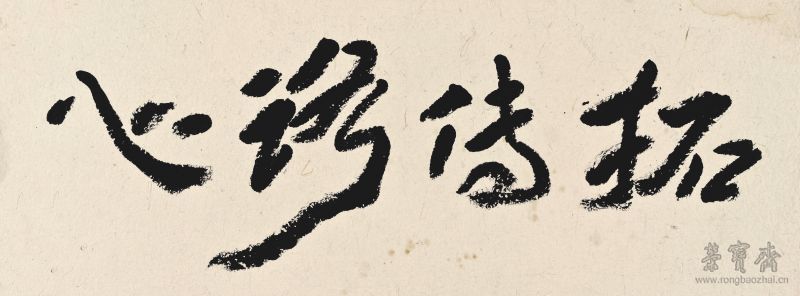 心傳拓
榮寶齋
www.rongbaozhai.cn